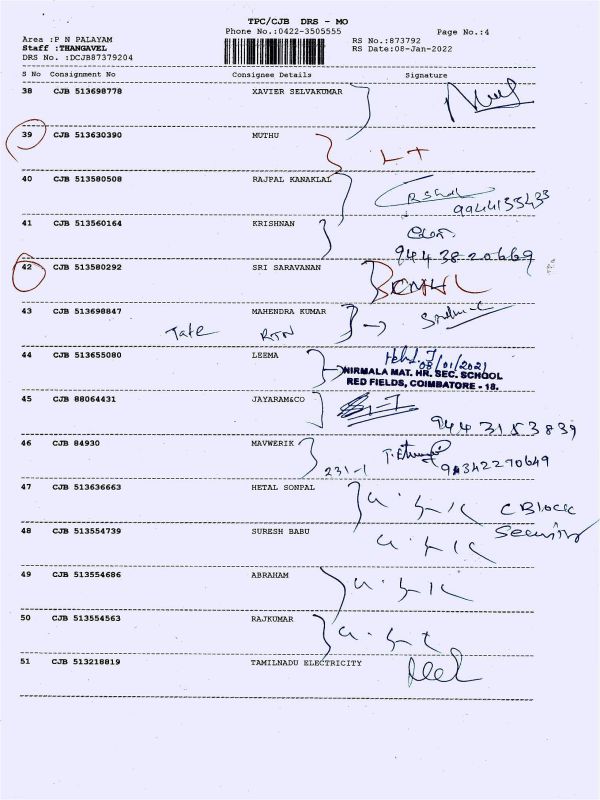 TPC/CJB DRS - MO
Phone No.:0422-3505555
Page No.:4
Area :P N PALAYAM
RS No.:873792
Staff :THANGAVEL
RS Date:08-Jan-2022
DRS No. :DCJB87379204
S No Consignment No Consignee Details Signature
38 CJB 513698778 XAVIER SELVAKUMAR
39 CJB 513630390 MUTHU
40 CJB 513580508 RAJPAL KANAKLAL
9944133433
41 CJB 513560164 KRISHNAN
94438 20669
42 CJB 513580292 SRI SARAVANAN
43 CJB 513698847 MAHENDRA KUMAR
Tate RTN
44 CJB 513655080 LEEMA
08/01/2021
NIRMALA MAT. HR. SEC. SCHOOL
RED FIELDS, COIMBATORE - 18.
45 CJB 88064431 JAYARAM&CO
9443153839
46 CJB 84930 MAVWERIK
231-1 9342270649
47 CJB 513636663 HETAL SONPAL
C Block
Security
48 CJB 513554739 SURESH BABU
49 CJB 513554686 ABRAHAM
50 CJB 513554563 RAJKUMAR
51 CJB 513218819 TAMILNADU ELECTRICITY